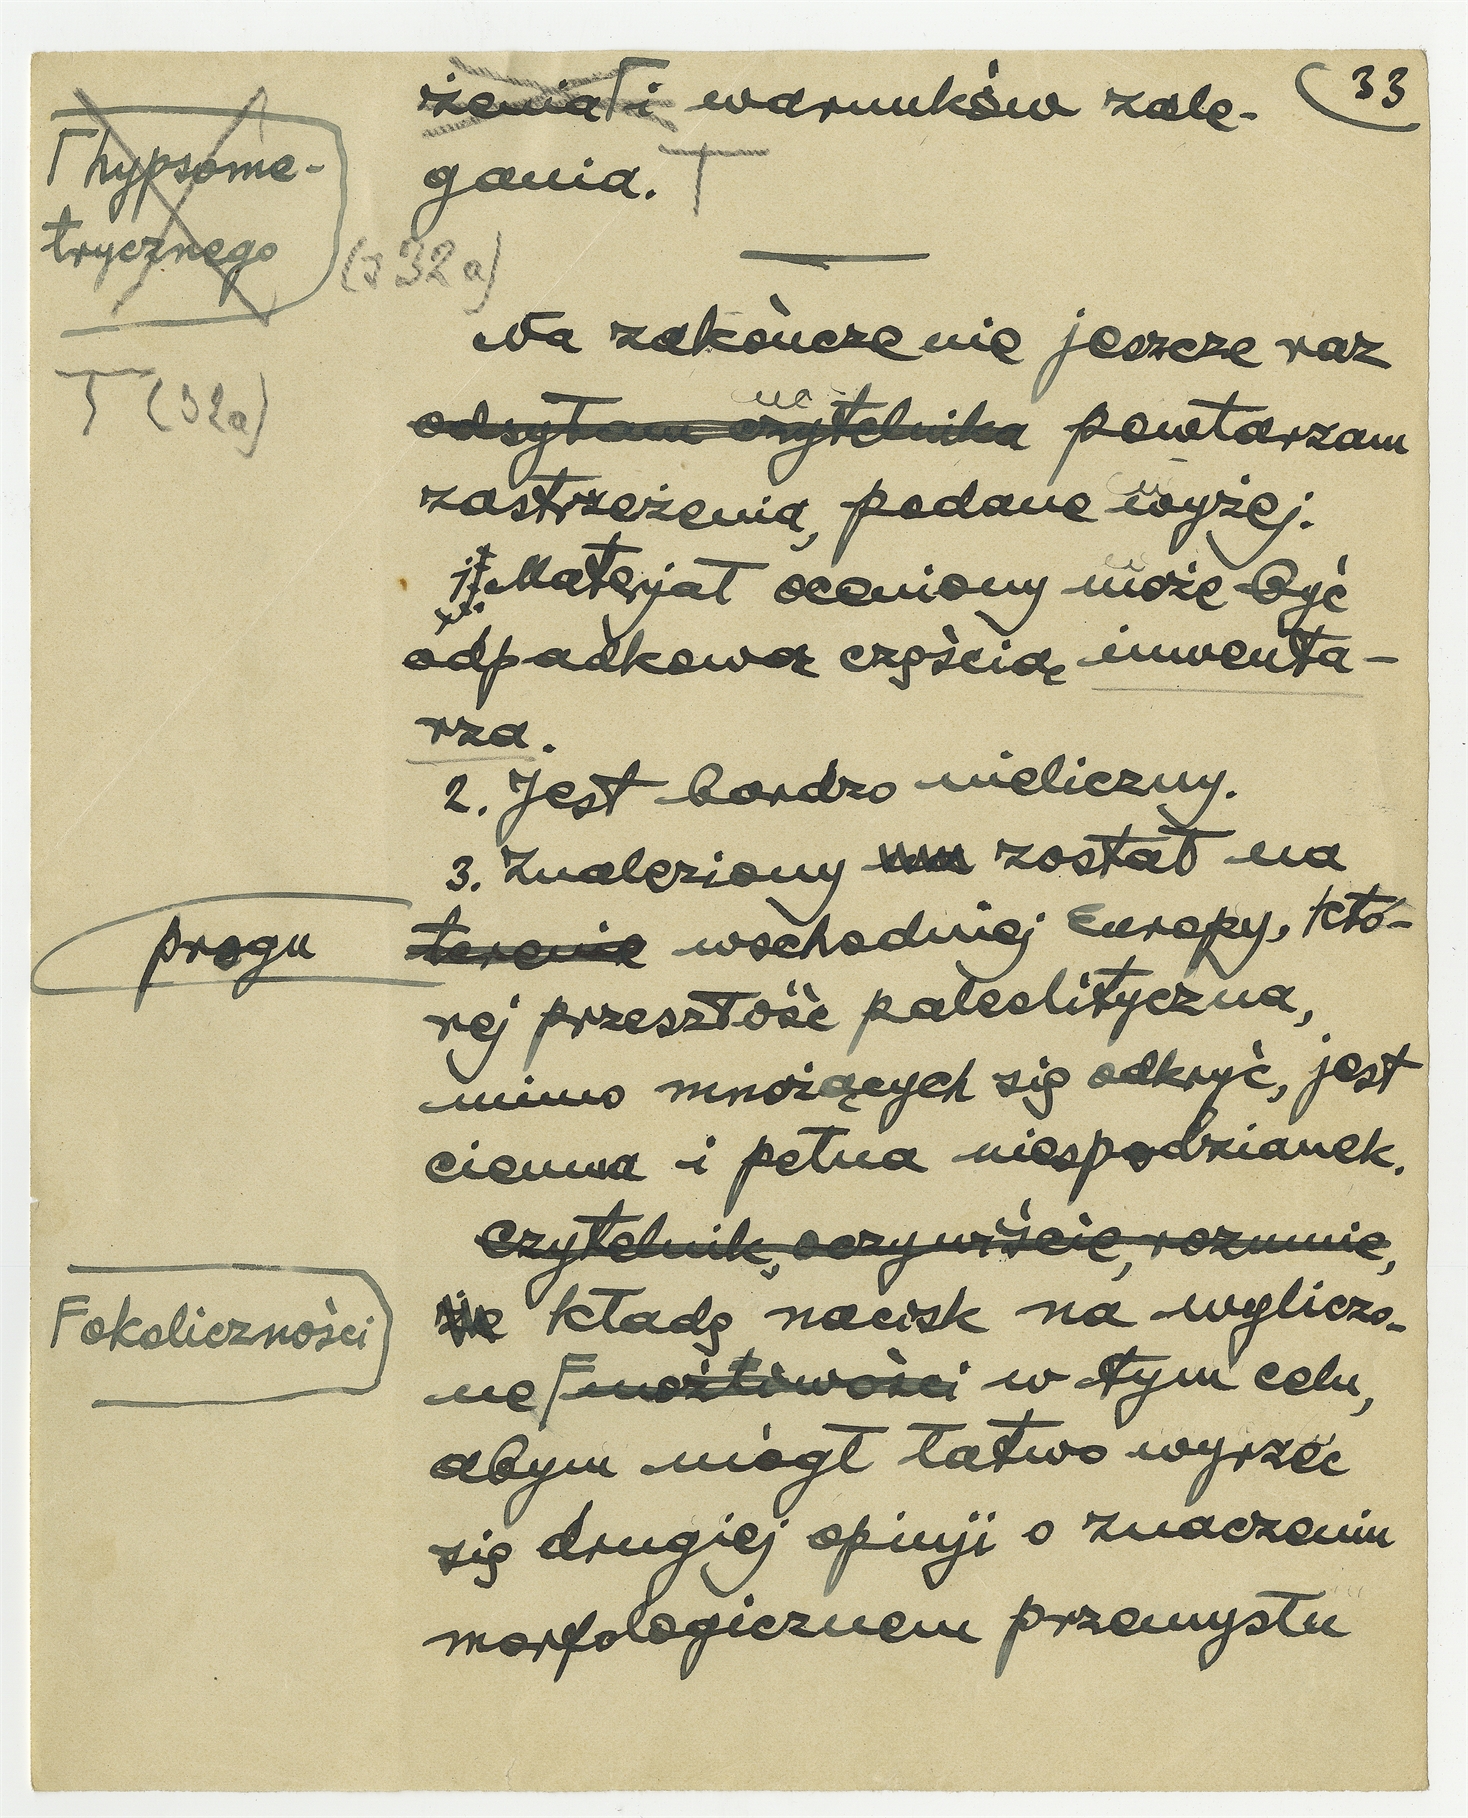 33
żenia i warunków zale-
gania.
hypsome-
trycznego
(s 32a)
T (32a)
Na zakończenie jeszcze raz
odsyłam czytelnika powtarzam
zastrzeżenia, podane wyżej.
1. Materjał oceniony może być
odpadkową częścią inwenta-
rza.
2. Jest bardzo nieliczny.
3. Znaleziony został na
progu
terenie wschodniej Europy, któ-
rej przeszłość paleolityczna,
mimo mnożących się odkryć, jest
ciemna i pełna niespodzianek.
Czytelnik, oczywiście, rozumie,
że kładę nacisk na wyliczo-
okoliczności
ne możliwości w tym celu,
abym mógł łatwo wyrzec
się drugiej opinji o znaczeniu
morfologicznem przemysłu